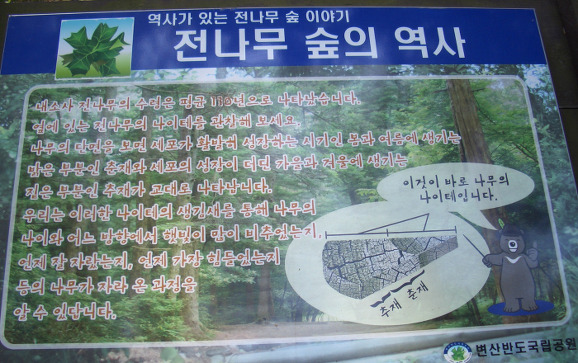 역사가 있는 전나무 숲 이야기
전나무 숲의 역사
내소사 전나무의 수령은 평균 110년으로 나타났습니다.
옆에 있는 전나무의 나이테를 관찰해 보세요.
나무의 단면을 보면 세포가 활발해 성장하는 시기인 봄과 여름에 생기는
밝은 부분인 춘재와 세포의 성장이 더딘 가을과 겨울에 생기는
짙은 부분인 추재가 교대로 나타납니다.
우리는 이러한 나이테의 생김새를 통해 나무의
나이와 어느 방향에서 햇빛이 많이 비추었는지,
언제 잘 자랐는지, 언제 가장 힘들었는지
등의 나무가 자라 온 과정을
알 수 있답니다.
이것이 바로 나무의
나이테입니다.
추재 춘재
변산반도국립공원